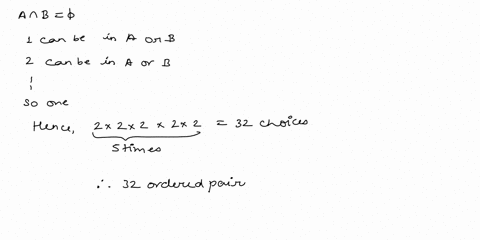 A ∩ B = φ
1 can be in A or B
2 can be in A or B
so one
Hence, 2 × 2 × 2 × 2 × 2 = 32 choices
5 times
∴ 32 ordered pair